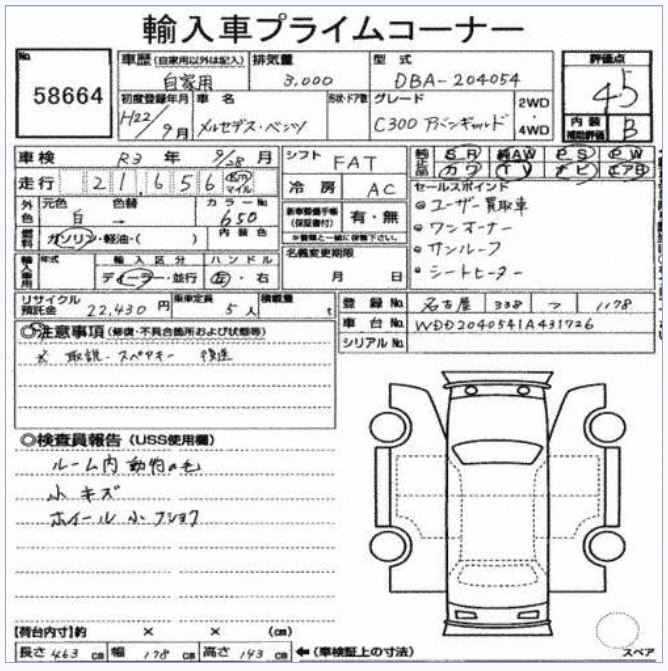 輸入車プライムコーナー
No. 58664
車歴(自家用以外は記入) 自家用
排気量 3,000
型式 DBA-204054
評価点 4.5
内装補助評価 B
初度登録年月 H22/9月
車名 メルセデス・ベンツ
形状・ドア数
グレード C300 アバンギャルド
2WD・4WD
車検 R3年 9/28月
走行 21,656 Km マイル
シフト FAT
冷房 AC
純正品 SR 純AW PS PW
カワ TV ナビ エアB
外色 元色 白 色替 → カラーNo. 650
燃料 ガソリン・軽油・( ) 内装色
新車整備手帳(保証書付) 有・無
※書類と一緒に保管下さい。
セールスポイント
ユーザー買取車
ワンオーナー
サンルーフ
シートヒーター
輸入車用 年式 輸入区分 ディーラー・並行 ハンドル 左・右
名義変更期限 月 日
リサイクル預託金 22,430円 乗車定員 5人 積載量 t
登録No. 名古屋 338 1178
車台No. WDD2040541A431726
シリアルNo.
◎注意事項(修復・不具合箇所および状態等)
※ 取説・スペアキー 後送
◎検査員報告(USS使用欄)
ルーム内 動物の毛
小キズ
ホイール小フショク
【荷台内寸】約 × × (cm)
長さ 463 cm 幅 178 cm 高さ 143 cm ←(車検証上の寸法)
スペア